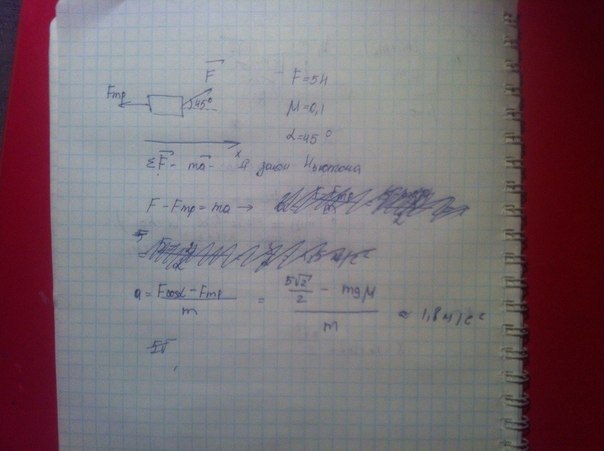 F
Fтр
45°
x
F = 5Н
μ = 0,1
α = 45°
ΣF = ma - закон Ньютона
F - Fтр = ma →
a = (F cosα - Fтр) / m = (5√2/2 - mgμ) / m ≈ 1,8 м/с²
5√